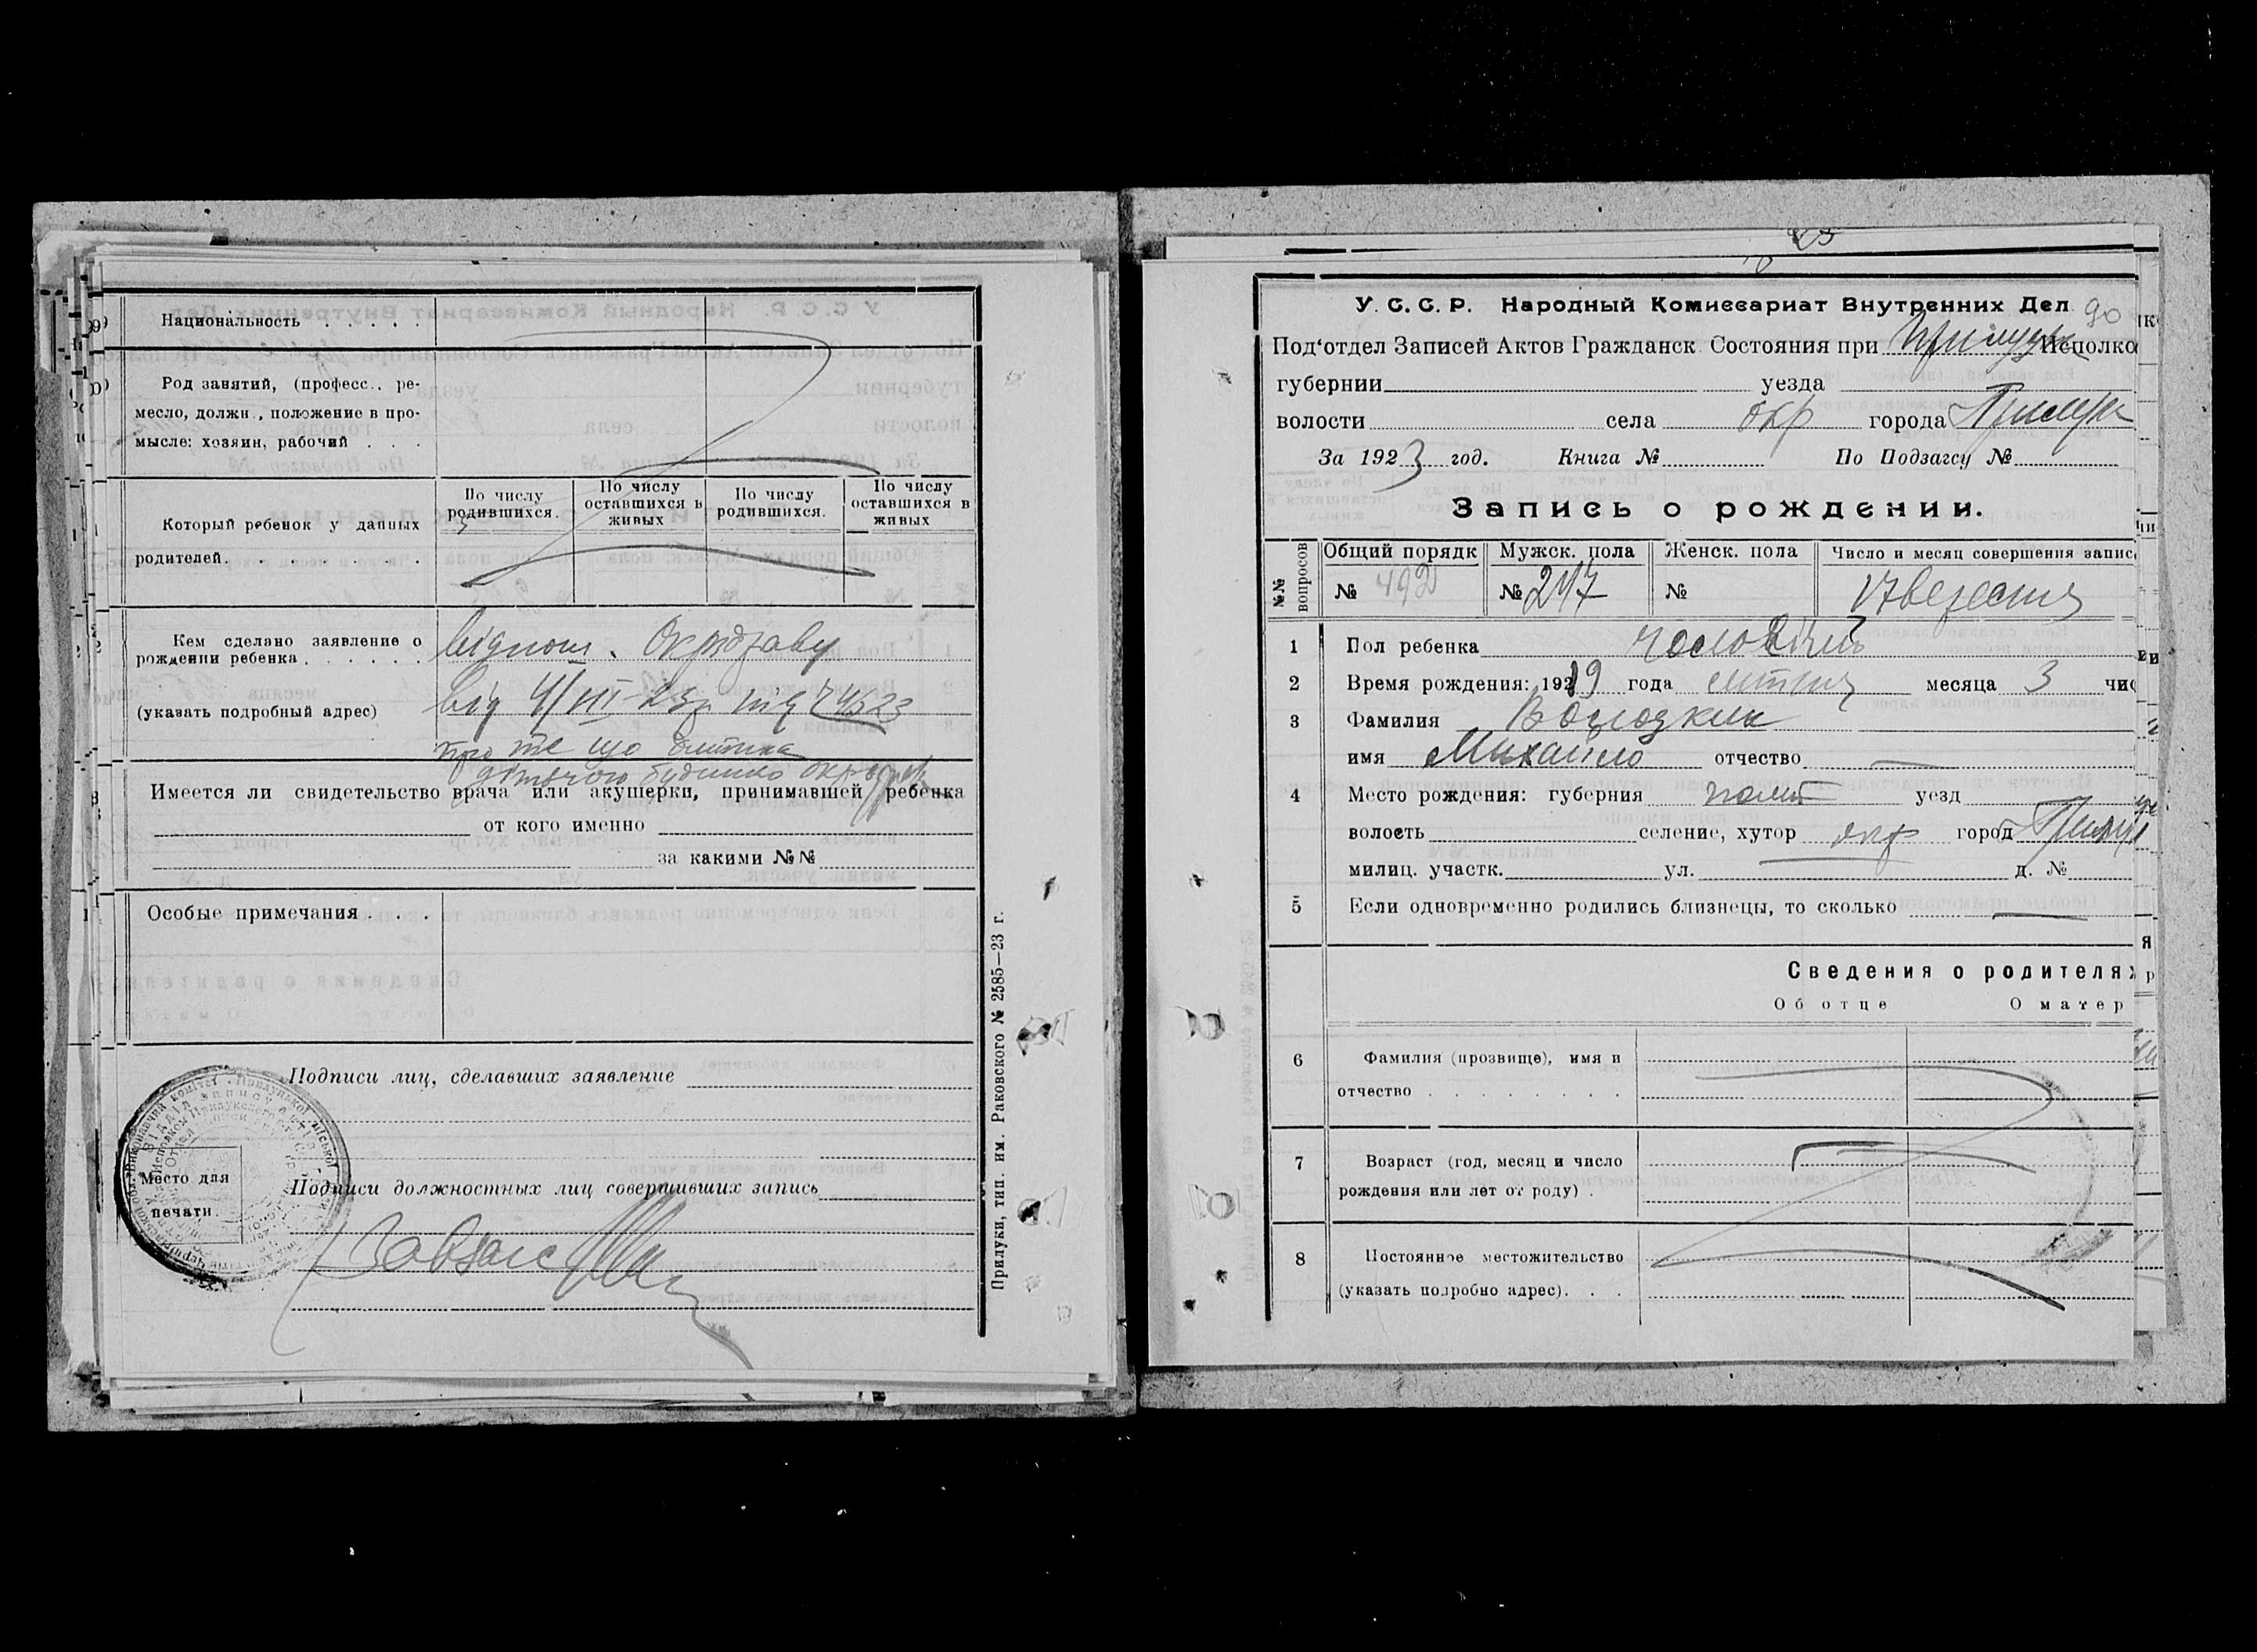 Национальность . . . . .
Род занятий, (професс., ре-
месло, должн., положение в про-
мысле: хозяин, рабочий . . .
Который ребенок у данных
родителей. . . . . . . .
По числу родившихся.
По числу оставшихся в живых
По числу родившихся.
По числу оставшихся в живых
Кем сделано заявление о
рождении ребенка . . . . . .
(указать подробный адрес)
віднош. Окрздраву
від 4/VIII-23р під
про те що дитина
дітячого будинко
Имеется ли свидетельство врача или акушерки, принимавшей ребенка
от кого именно
за какими №№
Особые примечания . . .
Подписи лиц, сделавших заявление
Место для
печати.
Подписи должностных лиц совершивших запись
Завзагс
Прилуки, тип. им. Раковского № 2585—23 г.
У. С. С. Р. Народный Комиссариат Внутренних Дел
90
Под'отдел Записей Актов Гражданск. Состояния при Исполко
губернии уезда
волости села окр города Прилуки
За 1923 год. Книга № По Подзагсу №
Запись о рождении.
№№ вопросов
Общий порядк № 492
Мужск. пола № 247
Женск. пола №
Число и месяц совершения запис
17 вересня
1 Пол ребенка чоловічий
2 Время рождения: 1919 года месяца 3 чис
3 Фамилия
имя Михайло отчество —
4 Место рождения: губерния полт уезд
волость селение, хутор окр город Прилук
милиц. участк. ул. д. №
5 Если одновременно родились близнецы, то сколько —
Сведения о родителях
Об отце О матер
6 Фамилия (прозвище), имя и
отчество . . . . . . . .
7 Возраст (год, месяц и число
рождения или лет от роду) .
8 Постоянное местожительство
(указать подробно адрес). . .